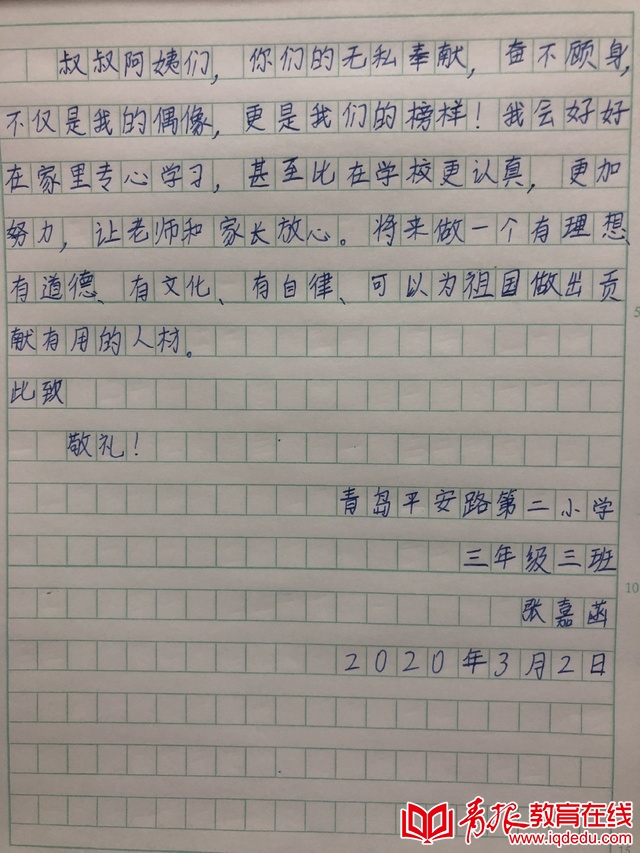 叔叔阿姨们，你们的无私奉献，奋不顾身，
不仅是我的偶像，更是我们的榜样！我会好好
在家里专心学习，甚至比在学校更认真，更加
努力，让老师和家长放心。将来做一个有理想、
有道德、有文化、有自律、可以为祖国做出贡
献有用的人材。
此致
敬礼！
青岛平安路第二小学
三年级三班
张嘉菡
2020年3月2日
5
10
15
青报教育在线
www.iqdedu.com